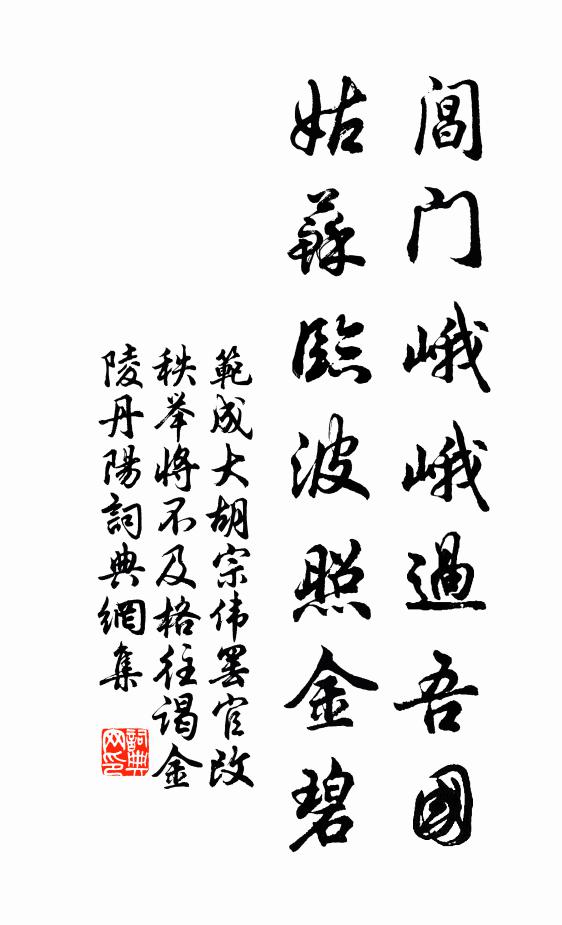 閶门峨峨過吾國
姑蘇臨波照金碧
範成大胡宗伟罢官改
秩举将不及格往谒金
陵丹陽詞典網集
詞典
网印